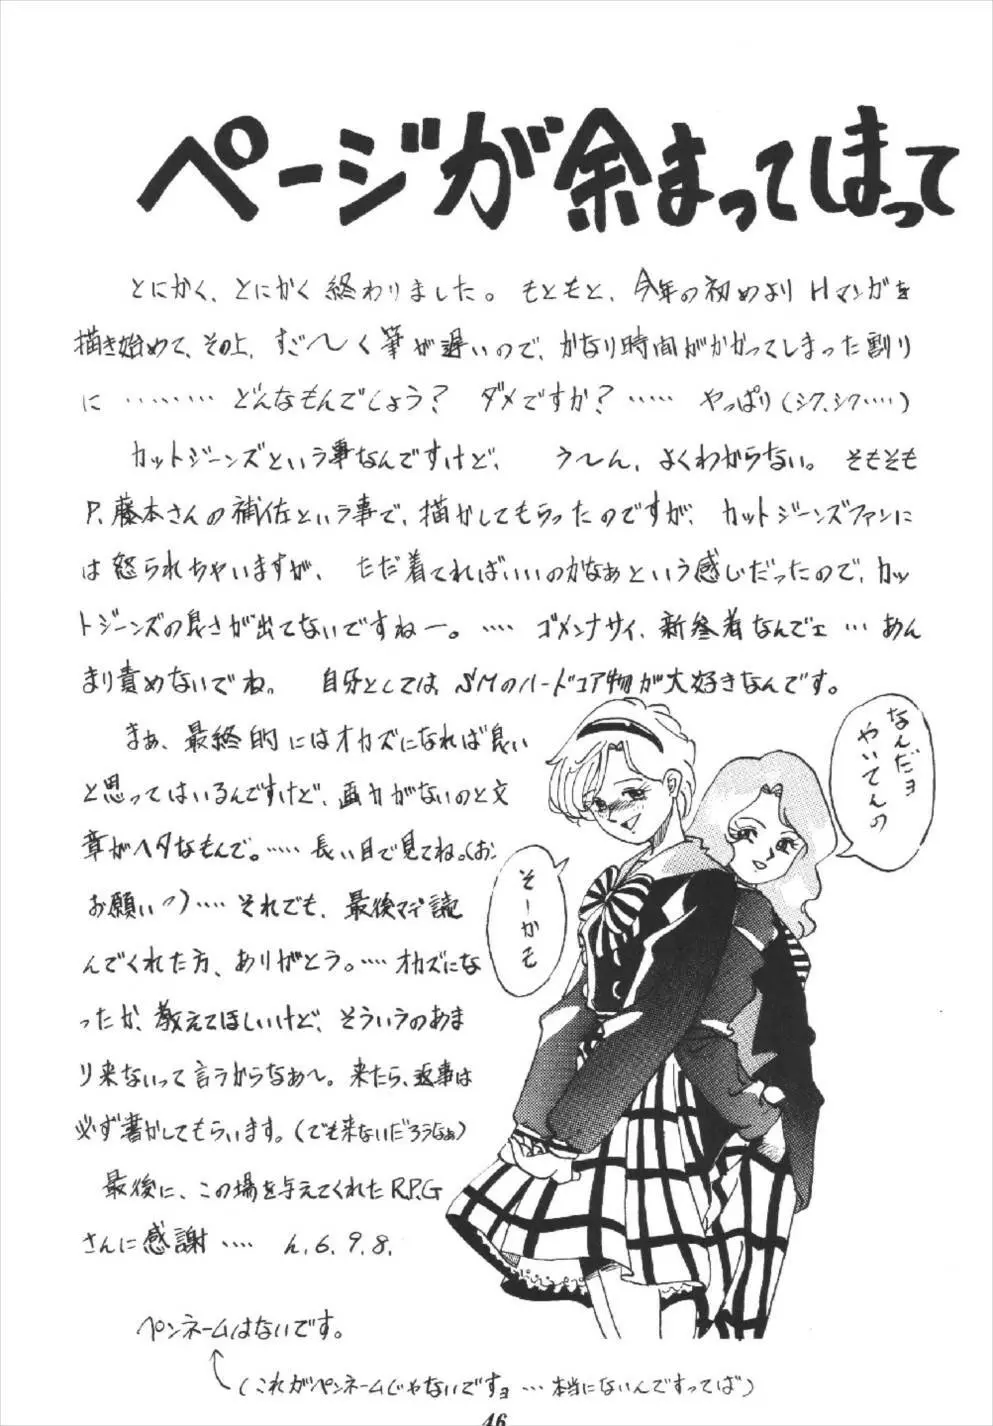 ページが余まってしまって
とにかく、とにかく終わりました。もともと、今年の初めよりHマンガを
描き始めて、その上、すご〜く筆が遅いので、かなり時間がかかってしまった割り
に ……… どんなもんでしょう? ダメですか? ‥‥‥ やっぱり(シク、シク‥‥)
カットジーンズという事なんですけど、 う〜ん、よくわからない。そもそも
P.藤本さんの補佐という事で、描かしてもらったのですが、カットジーンズファンに
は怒られちゃいますが、ただ着てればいいのかなぁという感じだったので、カッ
トジーンズの良さが出てないですねー。‥‥ ゴメンナサイ、新参者なんでェ … あん
まり責めないでね。 自分としては、SMのハードコア物が大好きなんです。
まぁ、最終的にはオカズになれば良い
と思ってはいるんですけど、画力がないのと文
章がヘタなもんで。‥‥‥ 長い目で見てね。(お
お願いっ)‥‥ それでも、最後マデ読
んでくれた方、ありがとう。‥‥ オカズにな
ったか、教えてほしいけど、そういうのあま
り来ないって言うからなあ〜。来たら、返事は
必ず書かしてもらいます。(でも来ないだろうなぁ)
最後に、この場を与えてくれたR.P.G
さんに感謝 ‥‥ h.6.9.8.
なんだョ
やいてんの
そーかも
ペンネームはないです。
(これがペンネームじゃないですョ … 本当にないんですってば)
46